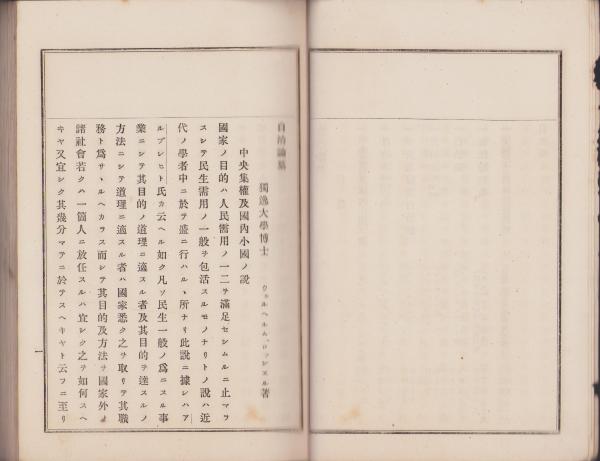 自治論纂
中央集權及國内小國ノ説
獨逸大學博士 ウィルヘルム、ロッシェル著
國家ノ目的ハ人民需用ノ一二ヲ滿足セシムルニ止マラ
スシテ民生需用ノ一般ヲ包括スルモノナリトノ説ハ近
代ノ學者中ニ於テ盛ニ行ハルヽ所ナリ此説ニ據レハア
ルブレヒト氏カ云ヘル如ク凡ソ民生一般ノ爲ニスル事
業ニシテ其目的ノ道理ニ適スル者及其目的ヲ達スルノ
方法ニシテ道理ニ適スル者ハ國家悉ク之ヲ取リテ其職
務ト爲サヽルヘカラス而シテ其目的及方法ヲ國家外ノ
諸社會若クハ一箇人ニ放任スルハ宜シク之ヲ如何スヘ
キヤ又宜シク其幾分マテニ於テスヘキヤト云フニ至リ
一